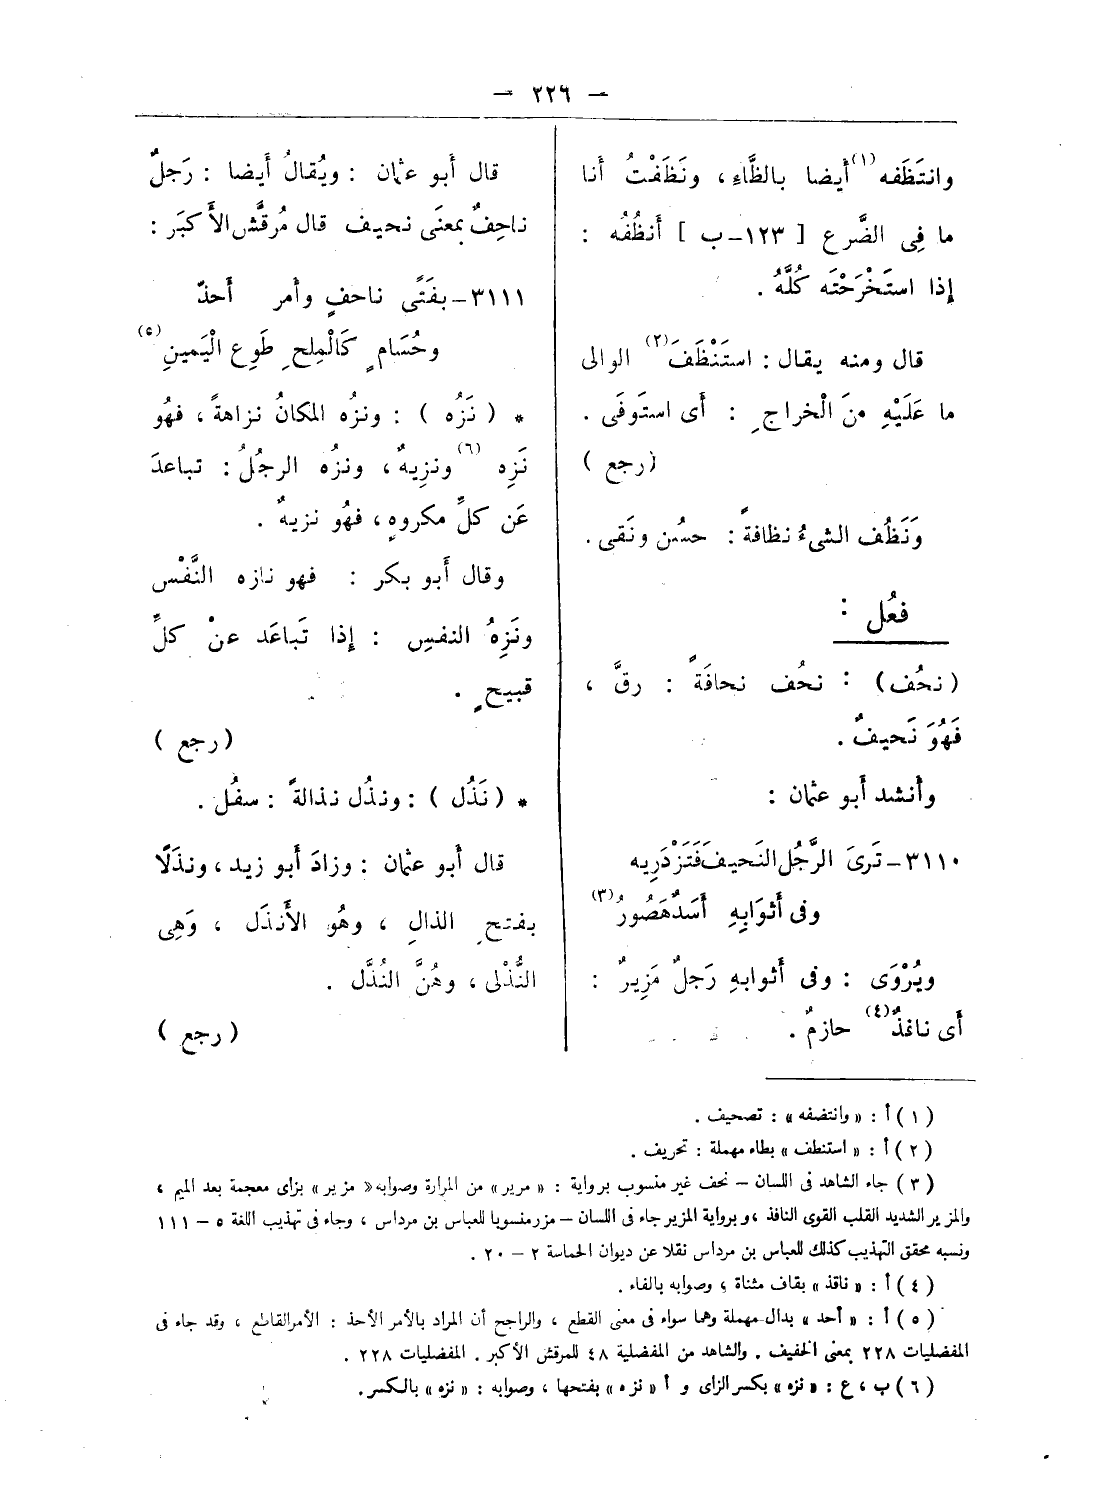 — ٢٢٦ —
وانتَظَفه (١) أيضا بالظَّاءِ ، ونَظَفْتُ أنا
ما فِى الضَّرع [ ١٢٣ـ ب ] أَنظُفُه :
إذا استَخْرَجْتَه كُلَّهُ .
قال ومنه يقال : استَنْظَفَ (٢) الوالى
ما عَلَيْهِ منَ الْخراجِ : أى استوفَى .
(رجع )
وَنَظُف الشىءُ نظافةً : حسُن ونَقى .
فعُل :
(نحُف) : نحُف نحافَةً : رقَّ ،
فَهُوَ نَحيفٌ .
وأنشد أبو عثمان :
٣١١٠ـ تَرىَ الرَّجُل النَحيفَ فَتَزْدَرِيه
وفى أثوَابِهِ أَسَدٌ هَصُورُ (٣)
ويُرْوَى : وفى أثوابهِ رَجلٌ مَزِيرٌ :
أى نافذٌ (٤) حازمٌ .
قال أبو عثمان : ويُقالُ أيضا : رَجلٌ
ناحِفٌ بمعنَى نحيف قال مُرقَّش الأَكبَر :
٣١١١ـ بفَتًى ناحفٍ وأمر أحذّ
وحُسَامٍ كَالْمِلحِ طَوعِ الْيَمينِ (٥)
* ( نَزُه ) : ونزُه المكانُ نزاهةً ، فهُو
نَزِه (٦) ونزِيهٌ ، ونزُه الرجُلُ : تباعدَ
عَن كلِّ مكروهٍ ، فهُو نزيهٌ .
وقال أبو بكر : فهو نازه النَّفْس
ونَزِهُ النفسِ : إذا تَباعَد عنْ كلِّ
قبيحٍ .
( رجع )
* ( نَذُل ) : ونذُل نذالةً : سفُل .
قال أبو عثمان : وزادَ أبو زيد ، ونذَلًا
بفتحِ الذالِ ، وهُو الأَنذَل ، وَهِى
النُّذْلى ، وهُنَّ النُذَّل .
( رجع )
(١) أ : « وانتضفه » : تصحيف .
(٢) أ : « استنطف » بطاء مهملة : تحريف .
(٣) جاء الشاهد فى اللسان – نحف غير منسوب برواية : « مرير » من المرارة وصوابه « مزير » بزاى معجمة بعد الميم ،
والمزير الشديد القلب القوى النافذ ، وبرواية المزير جاء فى اللسان – مزر منسوبا للعباس بن مرداس ، وجاء فى تهذيب اللغة ٥ – ١١١
ونسبه محقق التهذيب كذلك للعباس بن مرداس نقلا عن ديوان الحماسة ٢ – ٢٠ .
(٤) أ : « ناقذ » بقاف مثناة ، وصوابه بالفاء .
(٥) أ : « أحد » بدال مهملة وهما سواء فى معنى القطع ، والراجح أن المراد بالأمر الأحذ : الأمر القاطع ، وقد جاء فى
المفضليات ٢٢٨ بمعنى الخفيف . والشاهد من المفضلية ٤٨ للمرقش الأكبر . المفضليات ٢٢٨ .
(٦) ب ، ع : « نزه » بكسر الزاى و أ « نزه » بفتحها ، وصوابه : « نزه » بالكسر.